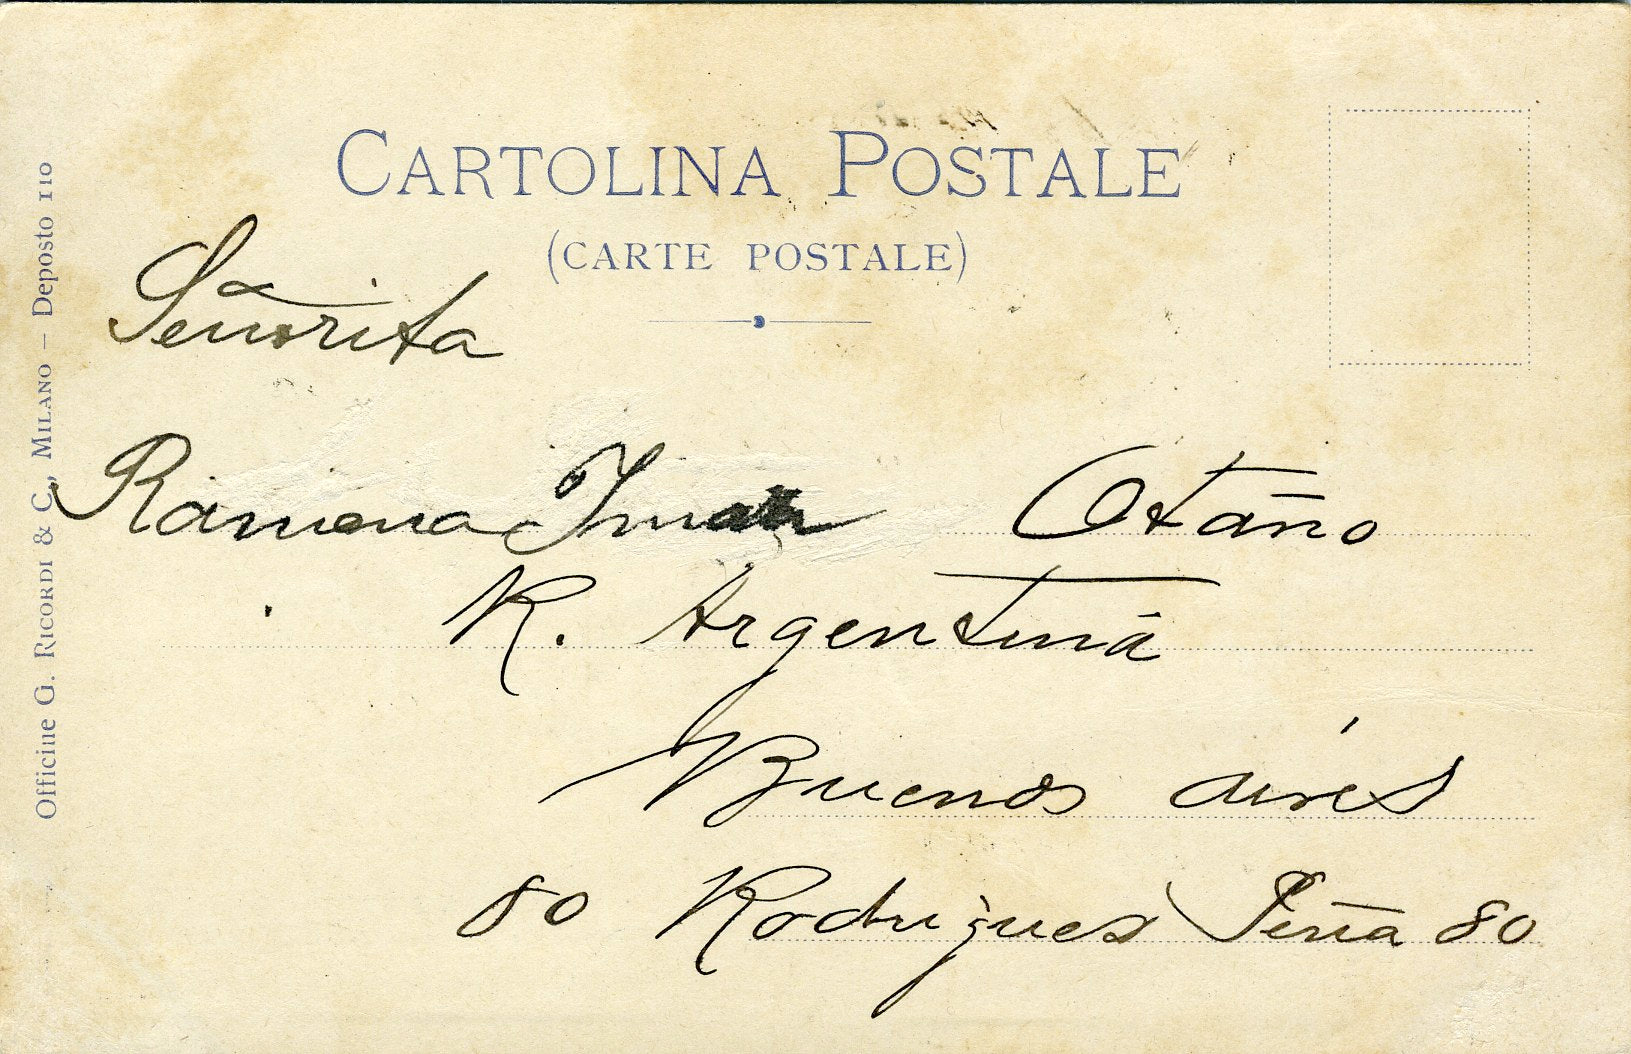 CARTOLINA POSTALE
(CARTE POSTALE)
Señorita
Ramona Otaño
R. Argentina
Buenos aires
80 Rodrigues Peña 80
Officine G. RICORDI & C., MILANO – Deposto 110